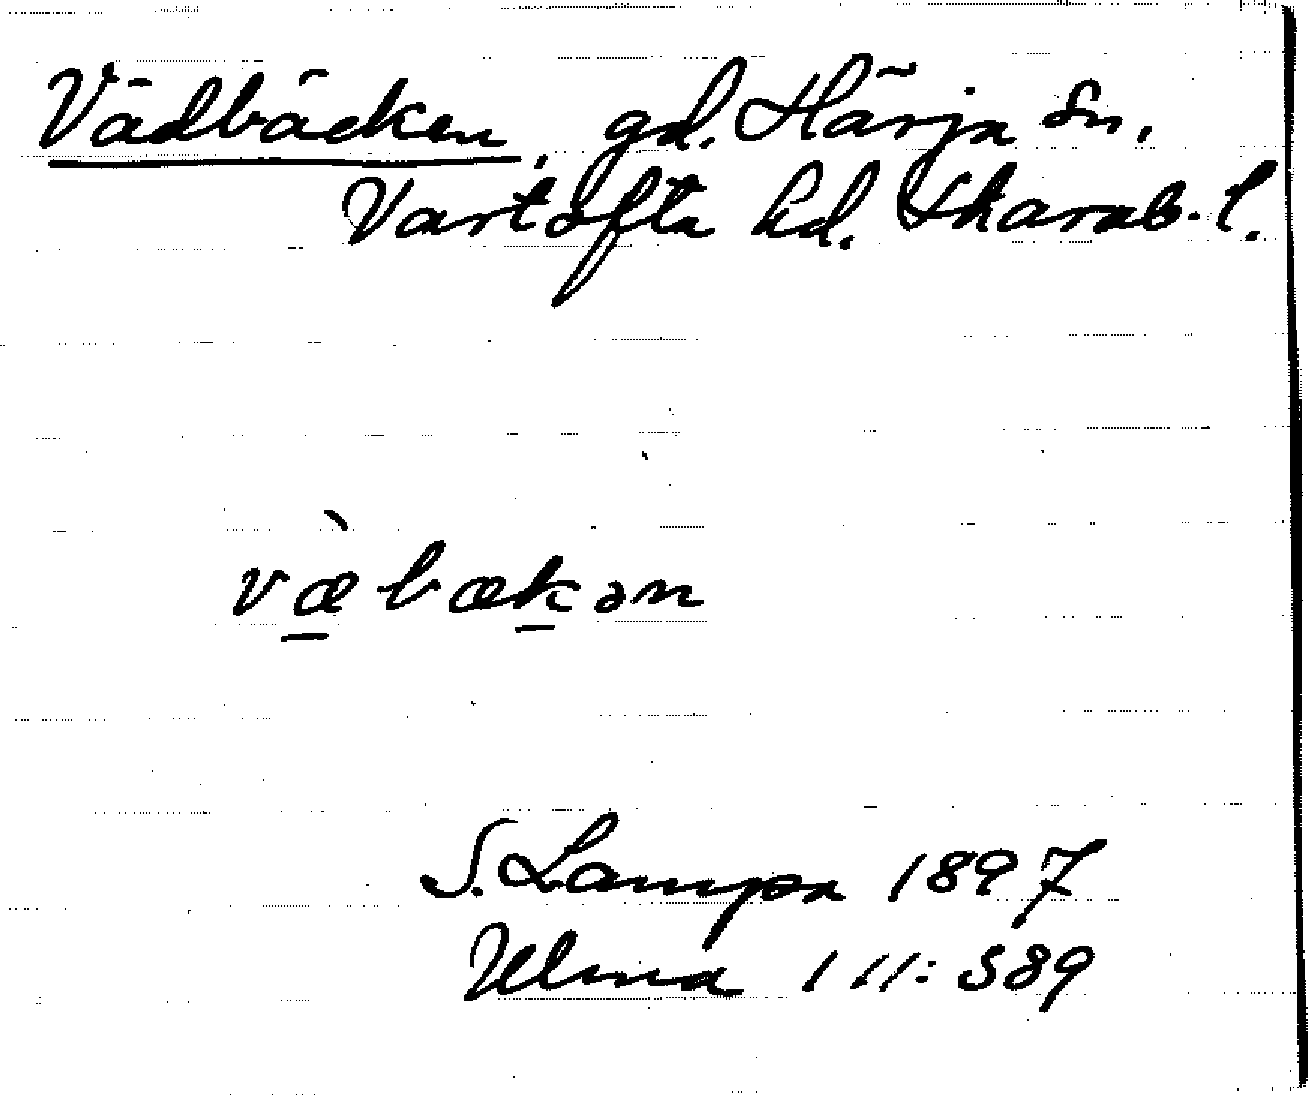 Vädbäcken, gd. Härja sn,
Vartofta hd. Skarab. l.
væ̀bækən
S. Lampa 1897
Ulma 111: 589